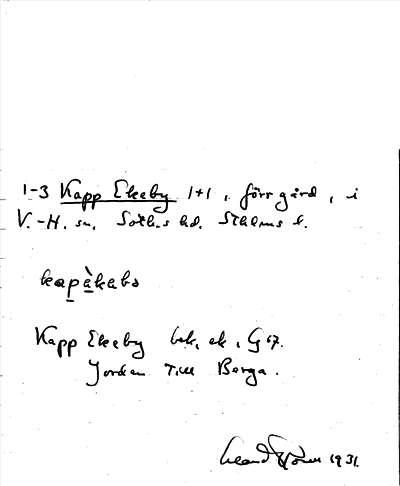 1-3 Kapp Ekeby 1+1, förr gård, i
V.-H. sn. Soth.s hd. Sthlms l.
kapàkabə
Kapp Ekeby bek. ek., G 67.
Jorden till Berga.
1931.